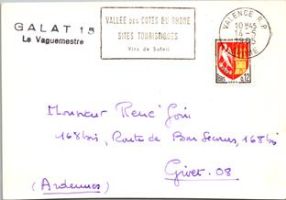 GALAT 15
Le Vaguemestre
VALLÉE DES COTES DU RHONE
SITES TOURISTIQUES
Vins de Soleil
VALENCE R.P.
Monsieur René
168bis, Route de Bon Secours, 168bis
Givet. 08
(Ardennes)